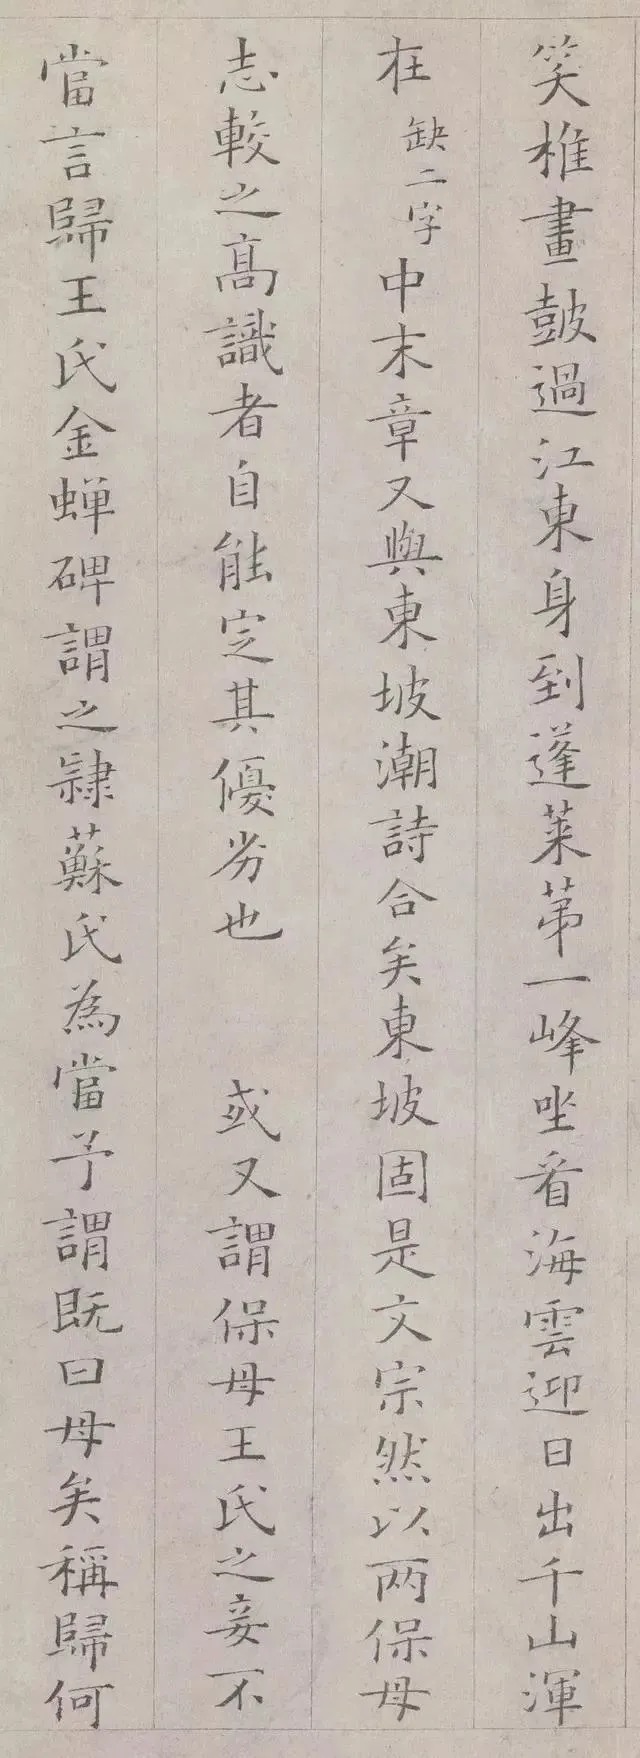 笑椎畫鼓過江東身到蓬萊苐一峰坐看海雲迎日出千山渾
在缺二字中末章又與東坡潮詩合矣東坡固是文宗然以两保母
志較之高識者自能定其優劣也 或又謂保母王氏之妾不
當言歸王氏金蝉碑謂之隸蘇氏為當予謂既曰母矣稱歸何